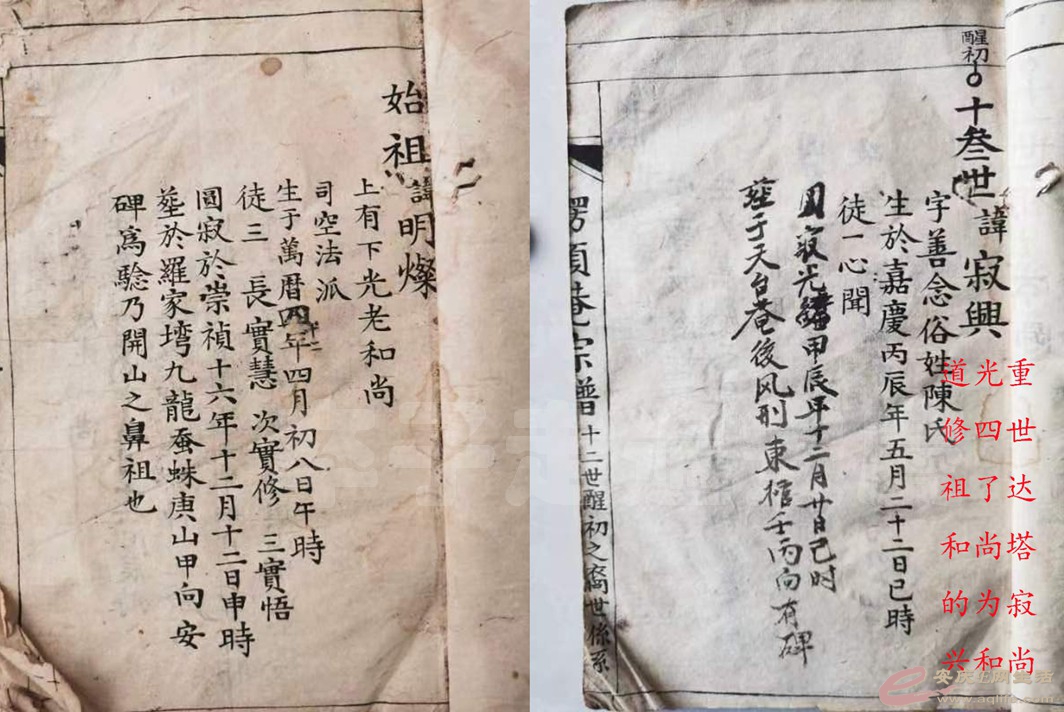 始祖諱明燦
上有下光老和尚
司空法派
生于萬曆四年四月初八日午時
徒三 長實慧 次實修 三實悟
圓寂於崇禎十六年十二月十二日申時
塟於羅家塆九龍蚕蛛庚山甲向安
碑爲驗乃開山之鼻祖也
醒初
十叁世諱寂興
字善念俗姓陳氏
生於嘉慶丙辰年五月二十二日巳時
徒一心聞
圓寂光緒甲辰年十二月廿日己时
塟于天台菴後风形東棺壬丙向有碑
頂菴宗譜
十二世醒初之裔世係系
重世达塔寂尚
光四了尚为和
道修祖和的兴
安庆E网生活
www.aqlife.com